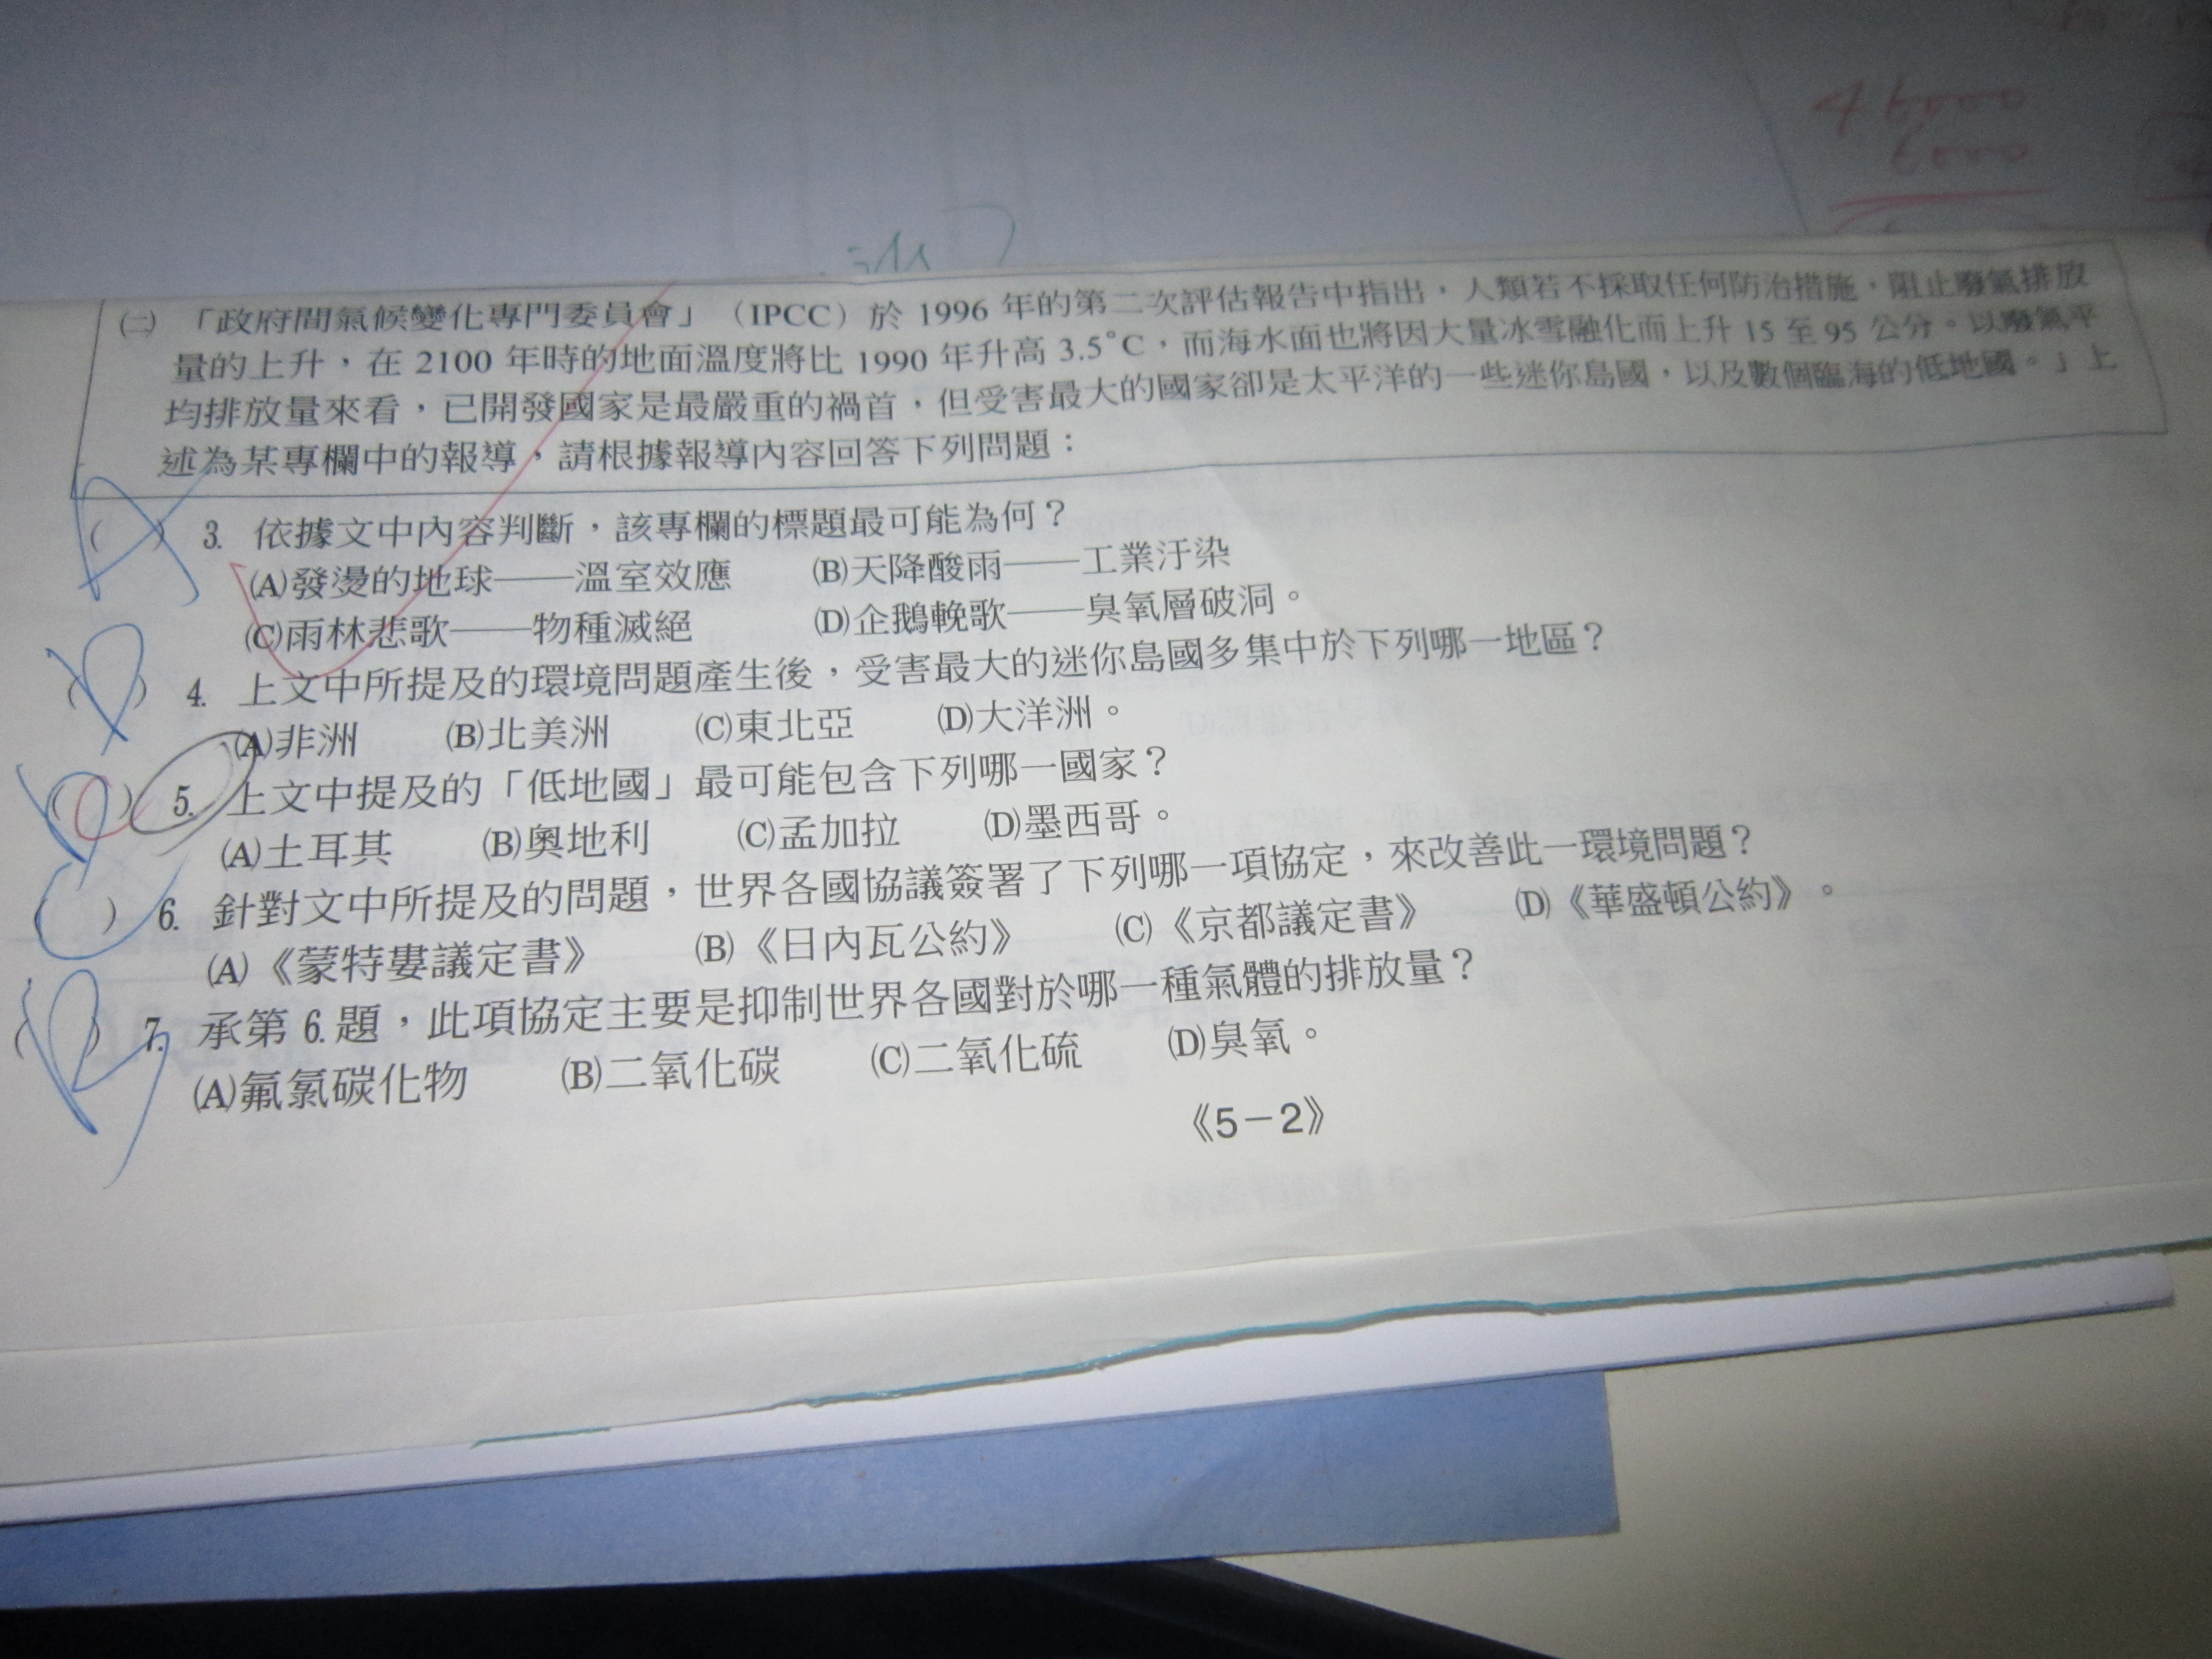 46000
6000
㈡ 「政府間氣候變化專門委員會」（IPCC）於 1996 年的第二次評估報告中指出，人類若不採取任何防治措施，阻止廢氣排放
量的上升，在 2100 年時的地面溫度將比 1990 年升高 3.5°C，而海水面也將因大量冰雪融化而上升 15 至 95 公分。以廢氣平
均排放量來看，已開發國家是最嚴重的禍首，但受害最大的國家卻是太平洋的一些迷你島國，以及數個臨海的低地國。」上
述為某專欄中的報導，請根據報導內容回答下列問題：
A ( ) 3. 依據文中內容判斷，該專欄的標題最可能為何？
(A)發燙的地球——溫室效應 (B)天降酸雨——工業汙染
(C)雨林悲歌——物種滅絕 (D)企鵝輓歌——臭氧層破洞。
D ( ) 4. 上文中所提及的環境問題產生後，受害最大的迷你島國多集中於下列哪一地區？
(A)非洲 (B)北美洲 (C)東北亞 (D)大洋洲。
( ) 5. 上文中提及的「低地國」最可能包含下列哪一國家？
(A)土耳其 (B)奧地利 (C)孟加拉 (D)墨西哥。
C ( ) 6. 針對文中所提及的問題，世界各國協議簽署了下列哪一項協定，來改善此一環境問題？
(A)《蒙特婁議定書》 (B)《日內瓦公約》 (C)《京都議定書》 (D)《華盛頓公約》。
B ( ) 7. 承第 6. 題，此項協定主要是抑制世界各國對於哪一種氣體的排放量？
(A)氟氯碳化物 (B)二氧化碳 (C)二氧化硫 (D)臭氧。
《5－2》